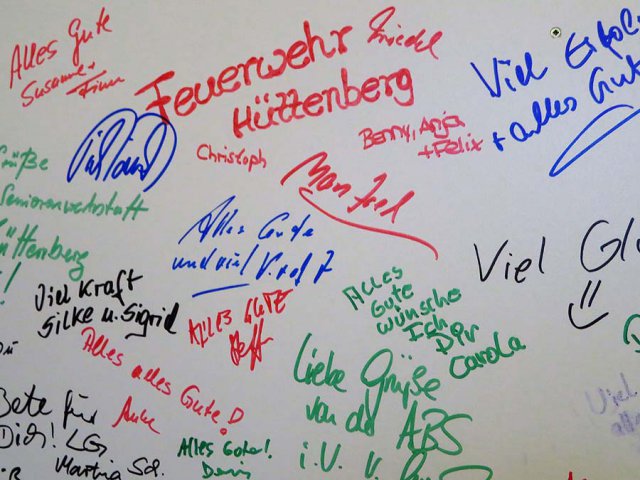 Alles Gute
Susanne +
Feuerwehr
Hüttenberg
Friedel
Viel Erfol
+ alles Gut
Benny, Anja
+ Felix
Christoph
Manfred
Grüße
Seniorenwerkstatt
Hüttenberg
!
Alles Gute
und viel Kraft
Viel Glü
Viel Kraft
Silke u. Sigrid
ALLES GUTE
Steff
ALLES
Gute
wünsche
Ich
Dir
Carola
Alles alles Gute!
Anke
Liebe Grüße
von der ABS
i.V. V.
Bete für
Dich! LG
Martina Sch.
Alles Gute!
Denis
Viel
alle